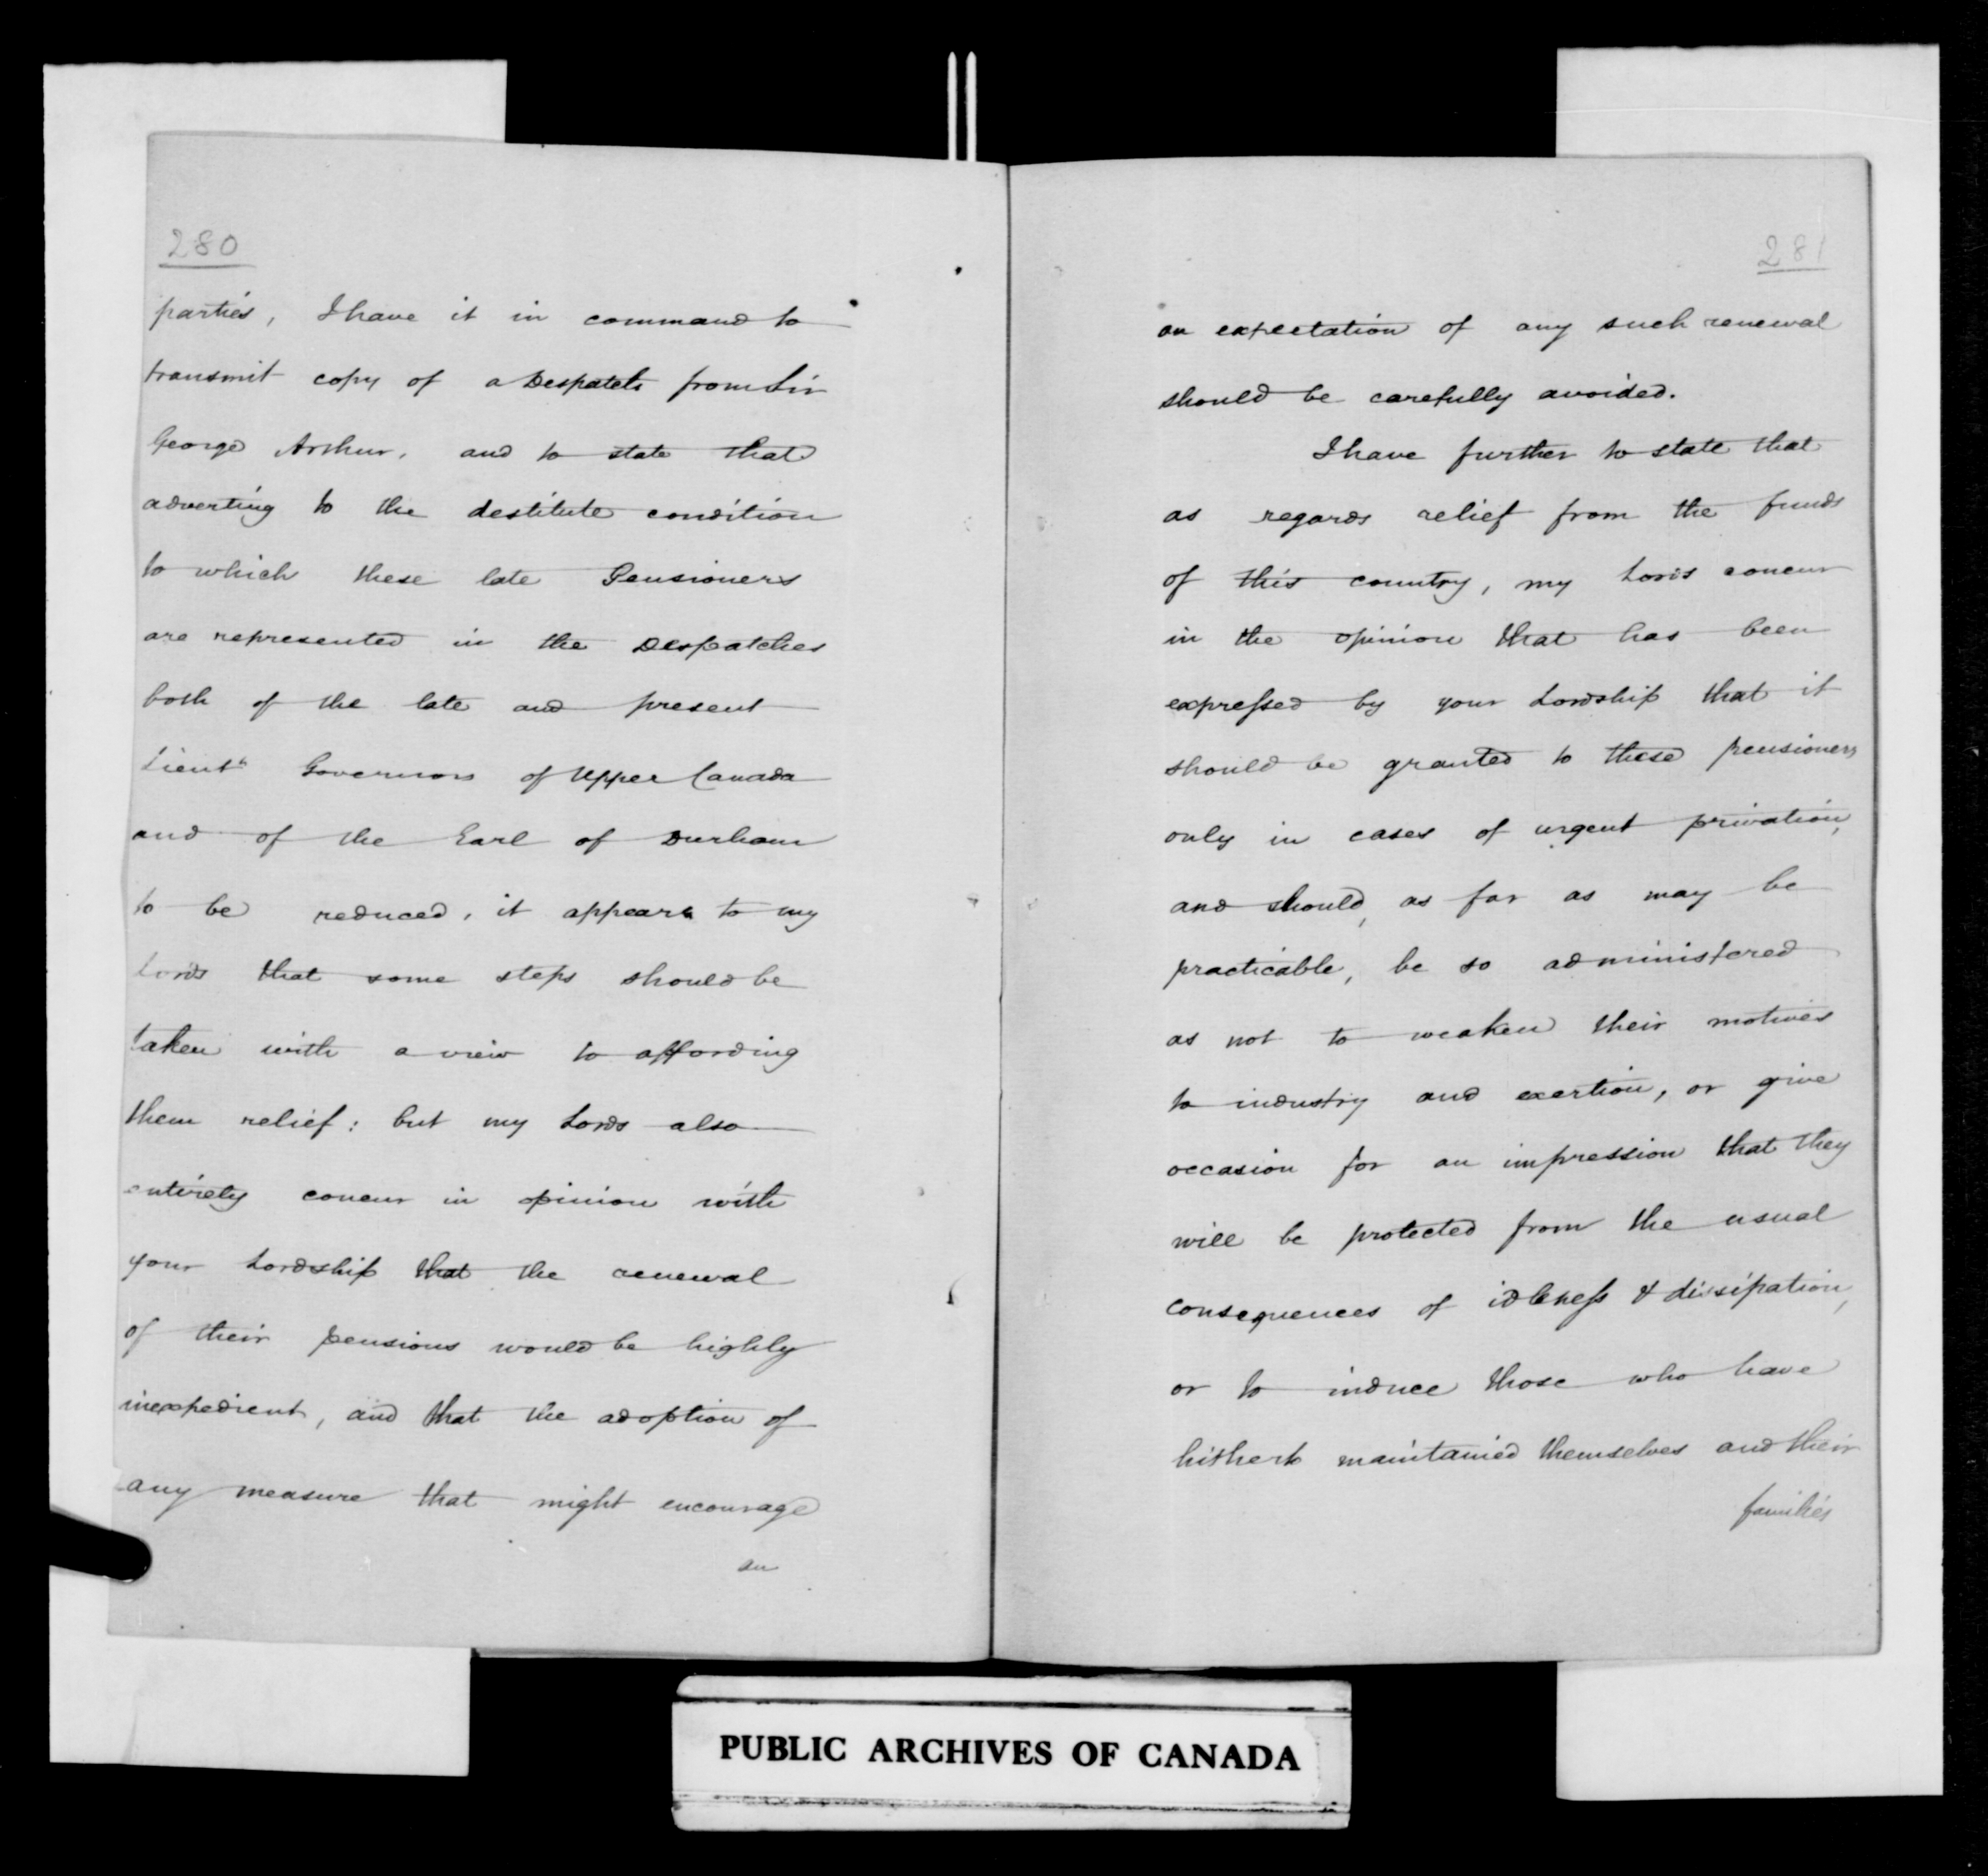 280
parties, I have it in command to
transmit copy of a Despatch from Sir
George Arthur, and to state that
adverting to the destitute condition
to which these late Pensioners
are represented in the Despatches
both of the late and present
Lieut. Governors of Upper Canada
and of the Earl of Durham
to be reduced, it appears to my
Lords that some steps should be
taken with a view to affording
them relief: but my Lords also
entirely concur in opinion with
your Lordship that the renewal
of their pensions would be highly
inexpedient, and that the adoption of
any measure that might encourage
an
281
an expectation of any such renewal
should be carefully avoided.
I have further to state that
as regards relief from the funds
of this country, my Lords concur
in the opinion that has been
expressed by your Lordship that it
should be granted to these pensioners
only in cases of urgent privation,
and should, as far as may be
practicable, be so administered
as not to weaken their motives
to industry and exertion, or give
occasion for an impression that they
will be protected from the usual
consequences of idleness & dissipation,
or to induce those who have
hitherto maintained themselves and their
families
PUBLIC ARCHIVES OF CANADA